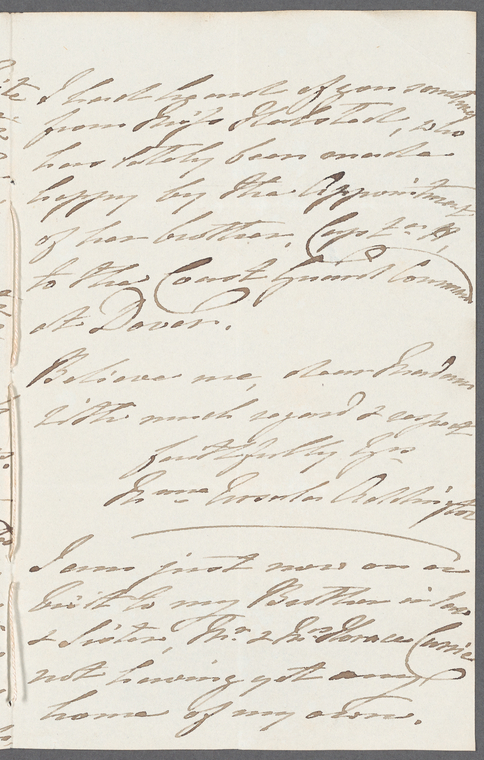 I had heard of you
from Miss Halsted, who
has lately been made
happy by the Appointment
of her brother, Capt.n H
to the Coast Guard Comman
at Dover.
Believe me, dear Madam
with much regard & respect
faithfully Yrs
Ursula
I am just now on a
visit to my Brother in law
& Sister, Mr. & Mrs Horace Currie
not having yet any
home of my own.